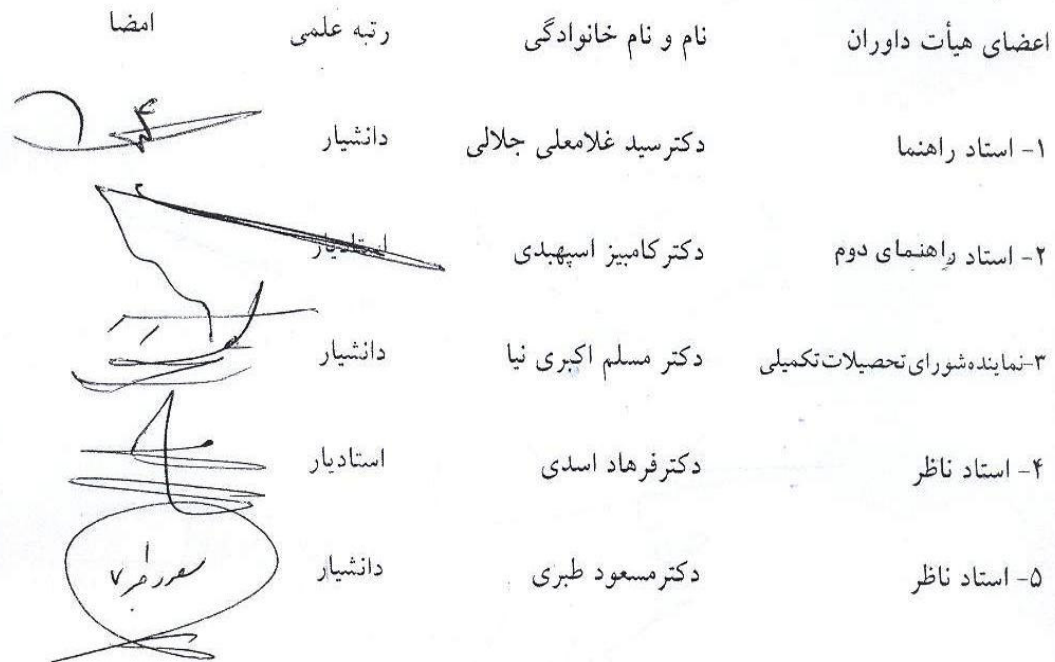 اعضای هیأت داوران نام و نام خانوادگی رتبه علمی امضا
۱- استاد راهنما دکترسید غلامعلی جلالی دانشیار
۲- استاد راهنمای دوم دکترکامبیز اسپهبدی استادیار
۳-نماینده‌شورای‌تحصیلات‌تکمیلی دکتر مسلم اکبری نیا دانشیار
۴- استاد ناظر دکترفرهاد اسدی استادیار
۵- استاد ناظر دکترمسعود طبری دانشیار